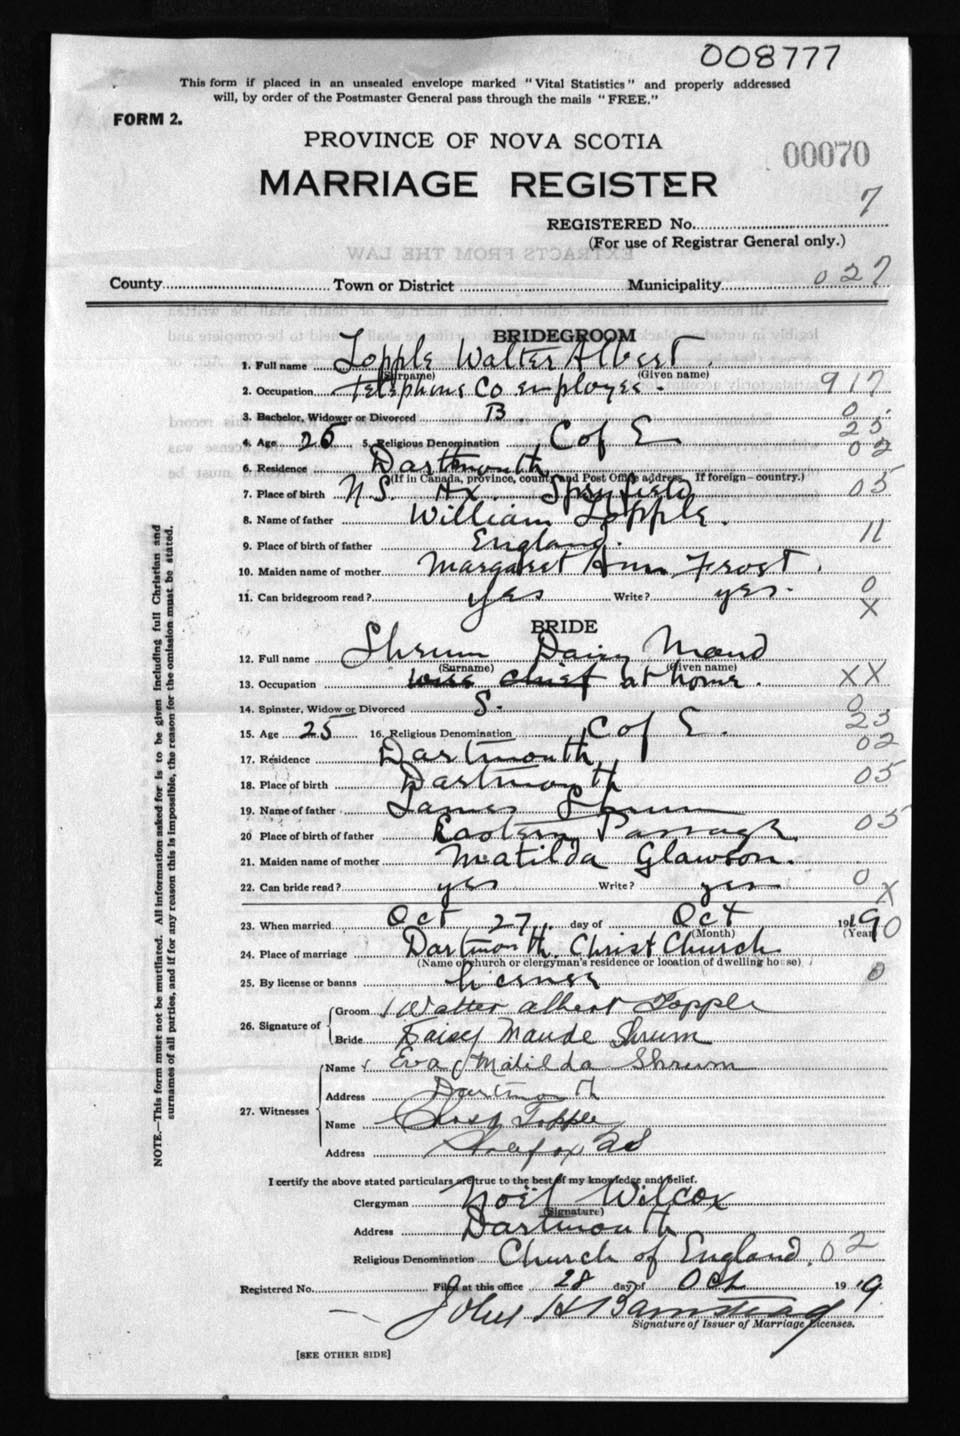 008777
This form if placed in an unsealed envelope marked "Vital Statistics" and properly addressed
will, by order of the Postmaster General pass through the mails "FREE."
FORM 2.
PROVINCE OF NOVA SCOTIA
00070
MARRIAGE REGISTER
7
REGISTERED No.
(For use of Registrar General only.)
EXTRACTS FROM THE LAW
County Town or District Municipality 027
BRIDEGROOM
1. Full name Topple Walter Albert
(Surname) (Given name)
2. Occupation Telephone Co employee. 917
3. Bachelor, Widower or Divorced B 0
4. Age 25 5. Religious Denomination C of E 25
6. Residence Dartmouth 02
(If in Canada, province, county and Post Office address. If foreign—country.)
7. Place of birth N.S. Hx. Spryfield 05
8. Name of father William Topple.
9. Place of birth of father England. 11
10. Maiden name of mother Margaret Ann Frost.
11. Can bridegroom read? yes Write? yes. 0
X
BRIDE
12. Full name Shrum Daisy Maud
(Surname) (Given name)
13. Occupation at home. XX
14. Spinster, Widow or Divorced S. 0
15. Age 25 16. Religious Denomination C of E. 25
17. Residence Dartmouth 02
18. Place of birth Dartmouth 05
19. Name of father James Shrum
20 Place of birth of father Eastern Passage 05
21. Maiden name of mother Matilda Glawson.
22. Can bride read? yes Write? yes 0
X
23. When married Oct 27 day of Oct 1919 0
(Month) (Year)
24. Place of marriage Dartmouth. Christ Church
(Name of church or clergyman's residence or location of dwelling house)
25. By license or banns license 0
26. Signature of Groom Walter Albert Topple
Bride Daisy Maude Shrum
27. Witnesses Name Eva Matilda Shrum
Address Dartmouth
Name Topple
Address Halifax NS
I certify the above stated particulars are true to the best of my knowledge and belief.
Clergyman Noel Wilcox
(Signature)
Address Dartmouth
Religious Denomination Church of England. 02
Registered No. Filed at this office 28 day of Oct 1919.
John H Barnstead
Signature of Issuer of Marriage Licenses.
[SEE OTHER SIDE]
NOTE.—This form must not be mutilated. All information asked for is to be given including full Christian and
surnames of all parties, and if for any reason this is impossible, the reason for the omission must be stated.